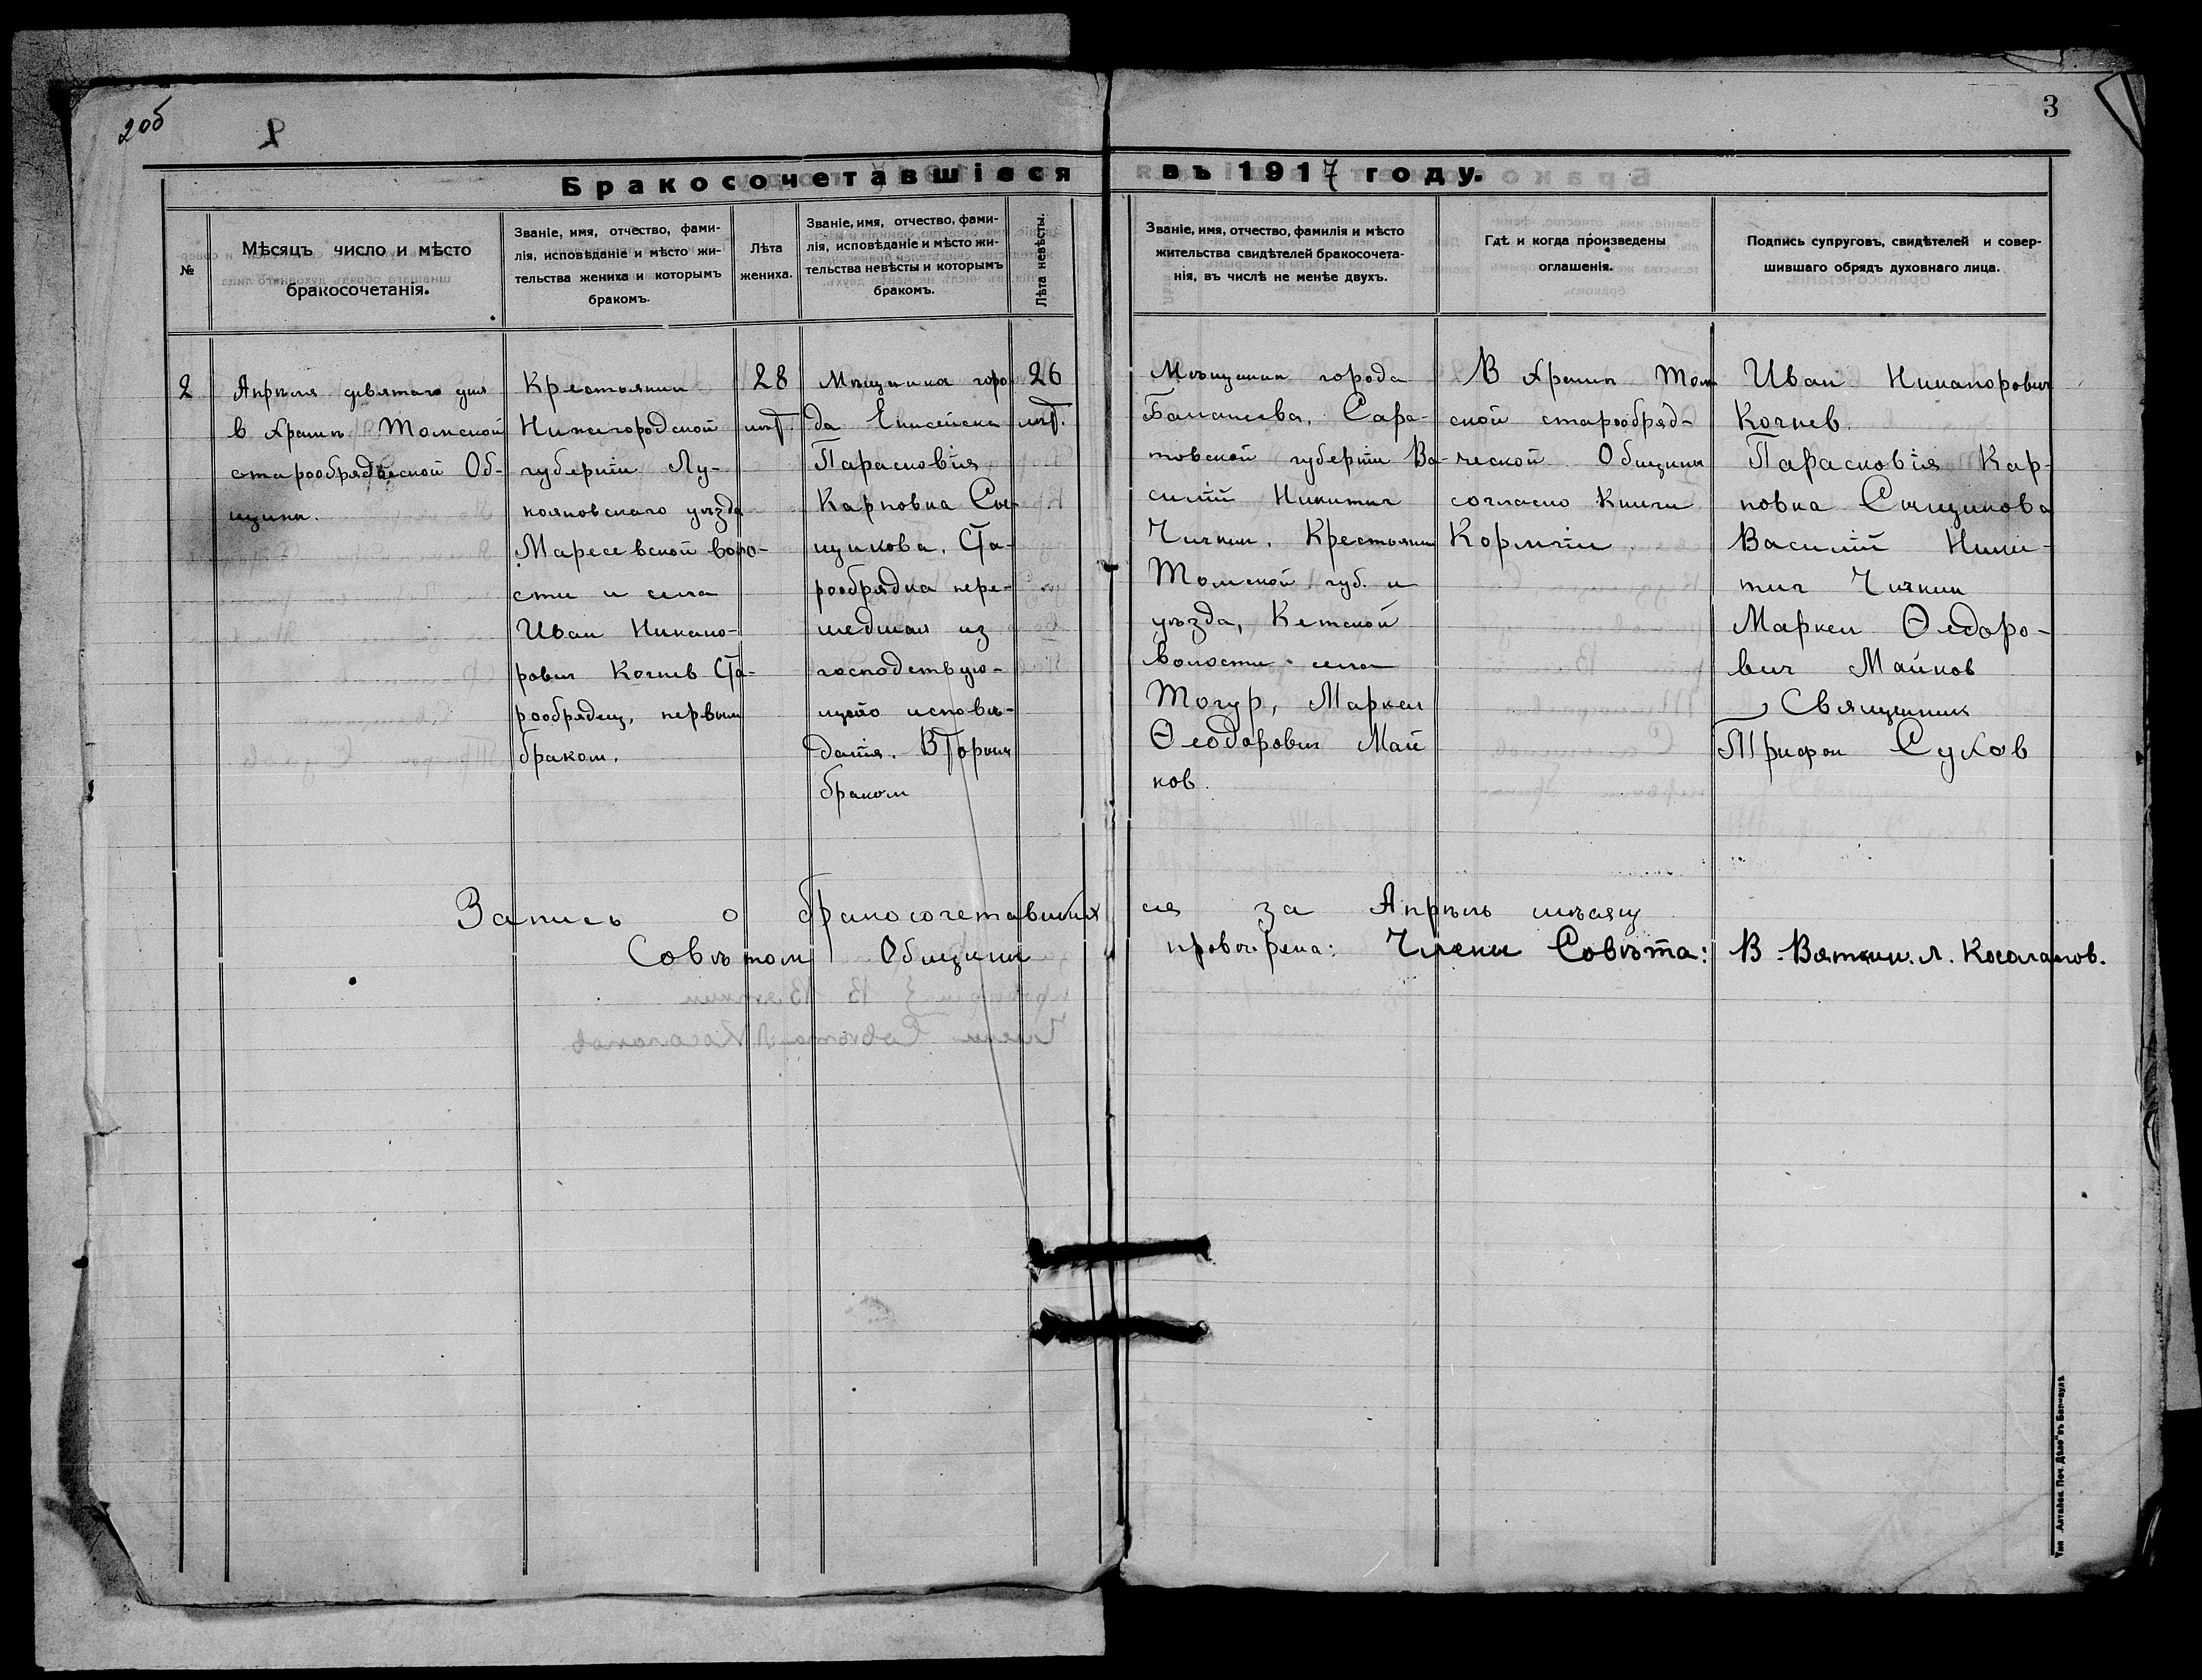 2об
3
Бракосочетавшіеся въ 1917 году.
№
Мѣсяцъ число и мѣсто
бракосочетанія.
Званіе, имя, отчество, фами-
лія, исповѣданіе и мѣсто жи-
тельства жениха и которымъ
бракомъ.
Лѣта
жениха.
Званіе, имя, отчество, фами-
лія, исповѣданіе и мѣсто жи-
тельства невѣсты и которымъ
бракомъ.
Лѣта невѣсты.
Званіе, имя, отчество, фамилія и мѣсто
жительства свидѣтелей бракосочета-
нія, въ числѣ не менѣе двухъ.
Гдѣ и когда произведены
оглашенія.
Подпись супруговъ, свидѣтелей и совер-
шившаго обрядъ духовнаго лица.
2
Апрѣля девятаго дня
в храмѣ Томской
старообрядческой Об-
щины.
Крестьянин
Нижегородской
губерніи Лу-
кояновскаго уѣзда
Маресевской воло-
сти и села
Иван Никано-
рович Кочнев Ста-
рообрядец, первым
браком.
28
лѣт.
Мѣщанка горо-
да Енисейска
Парасковія
Карповна Сы-
щикова. Ста-
рообрядка пере-
шедшая из
господствую-
щаго исповѣ-
данія. Вторым
браком
26
лѣт.
Мѣщанин города
Балашева, Сара-
товской губерніи Ва-
силій Никитич
Чичкин. Крестьянин
Томской губ. и
уѣзда, Кетской
волости села
Тогур, Маркел
Ѳеодорович Май
ков.
В храмѣ Том-
ской старообряд-
ческой Общины
согласно Книги
Кормчіи
Иван Никанорович
Кочнев.
Парасковія Кар-
повна Сыщикова
Василій Ники-
тич Чичкин
Маркел Ѳедоро-
вич Майков
Священник
Трифон Сухов
Запись о бракосочетавшихся за Апрѣль мѣсяц
Совѣтом Общины провѣрена: Члены Совѣта: В. Вяткин. Л. Косолапов.
Тип „Алтайск. Печ. Дѣло" въ Барнаулѣ.